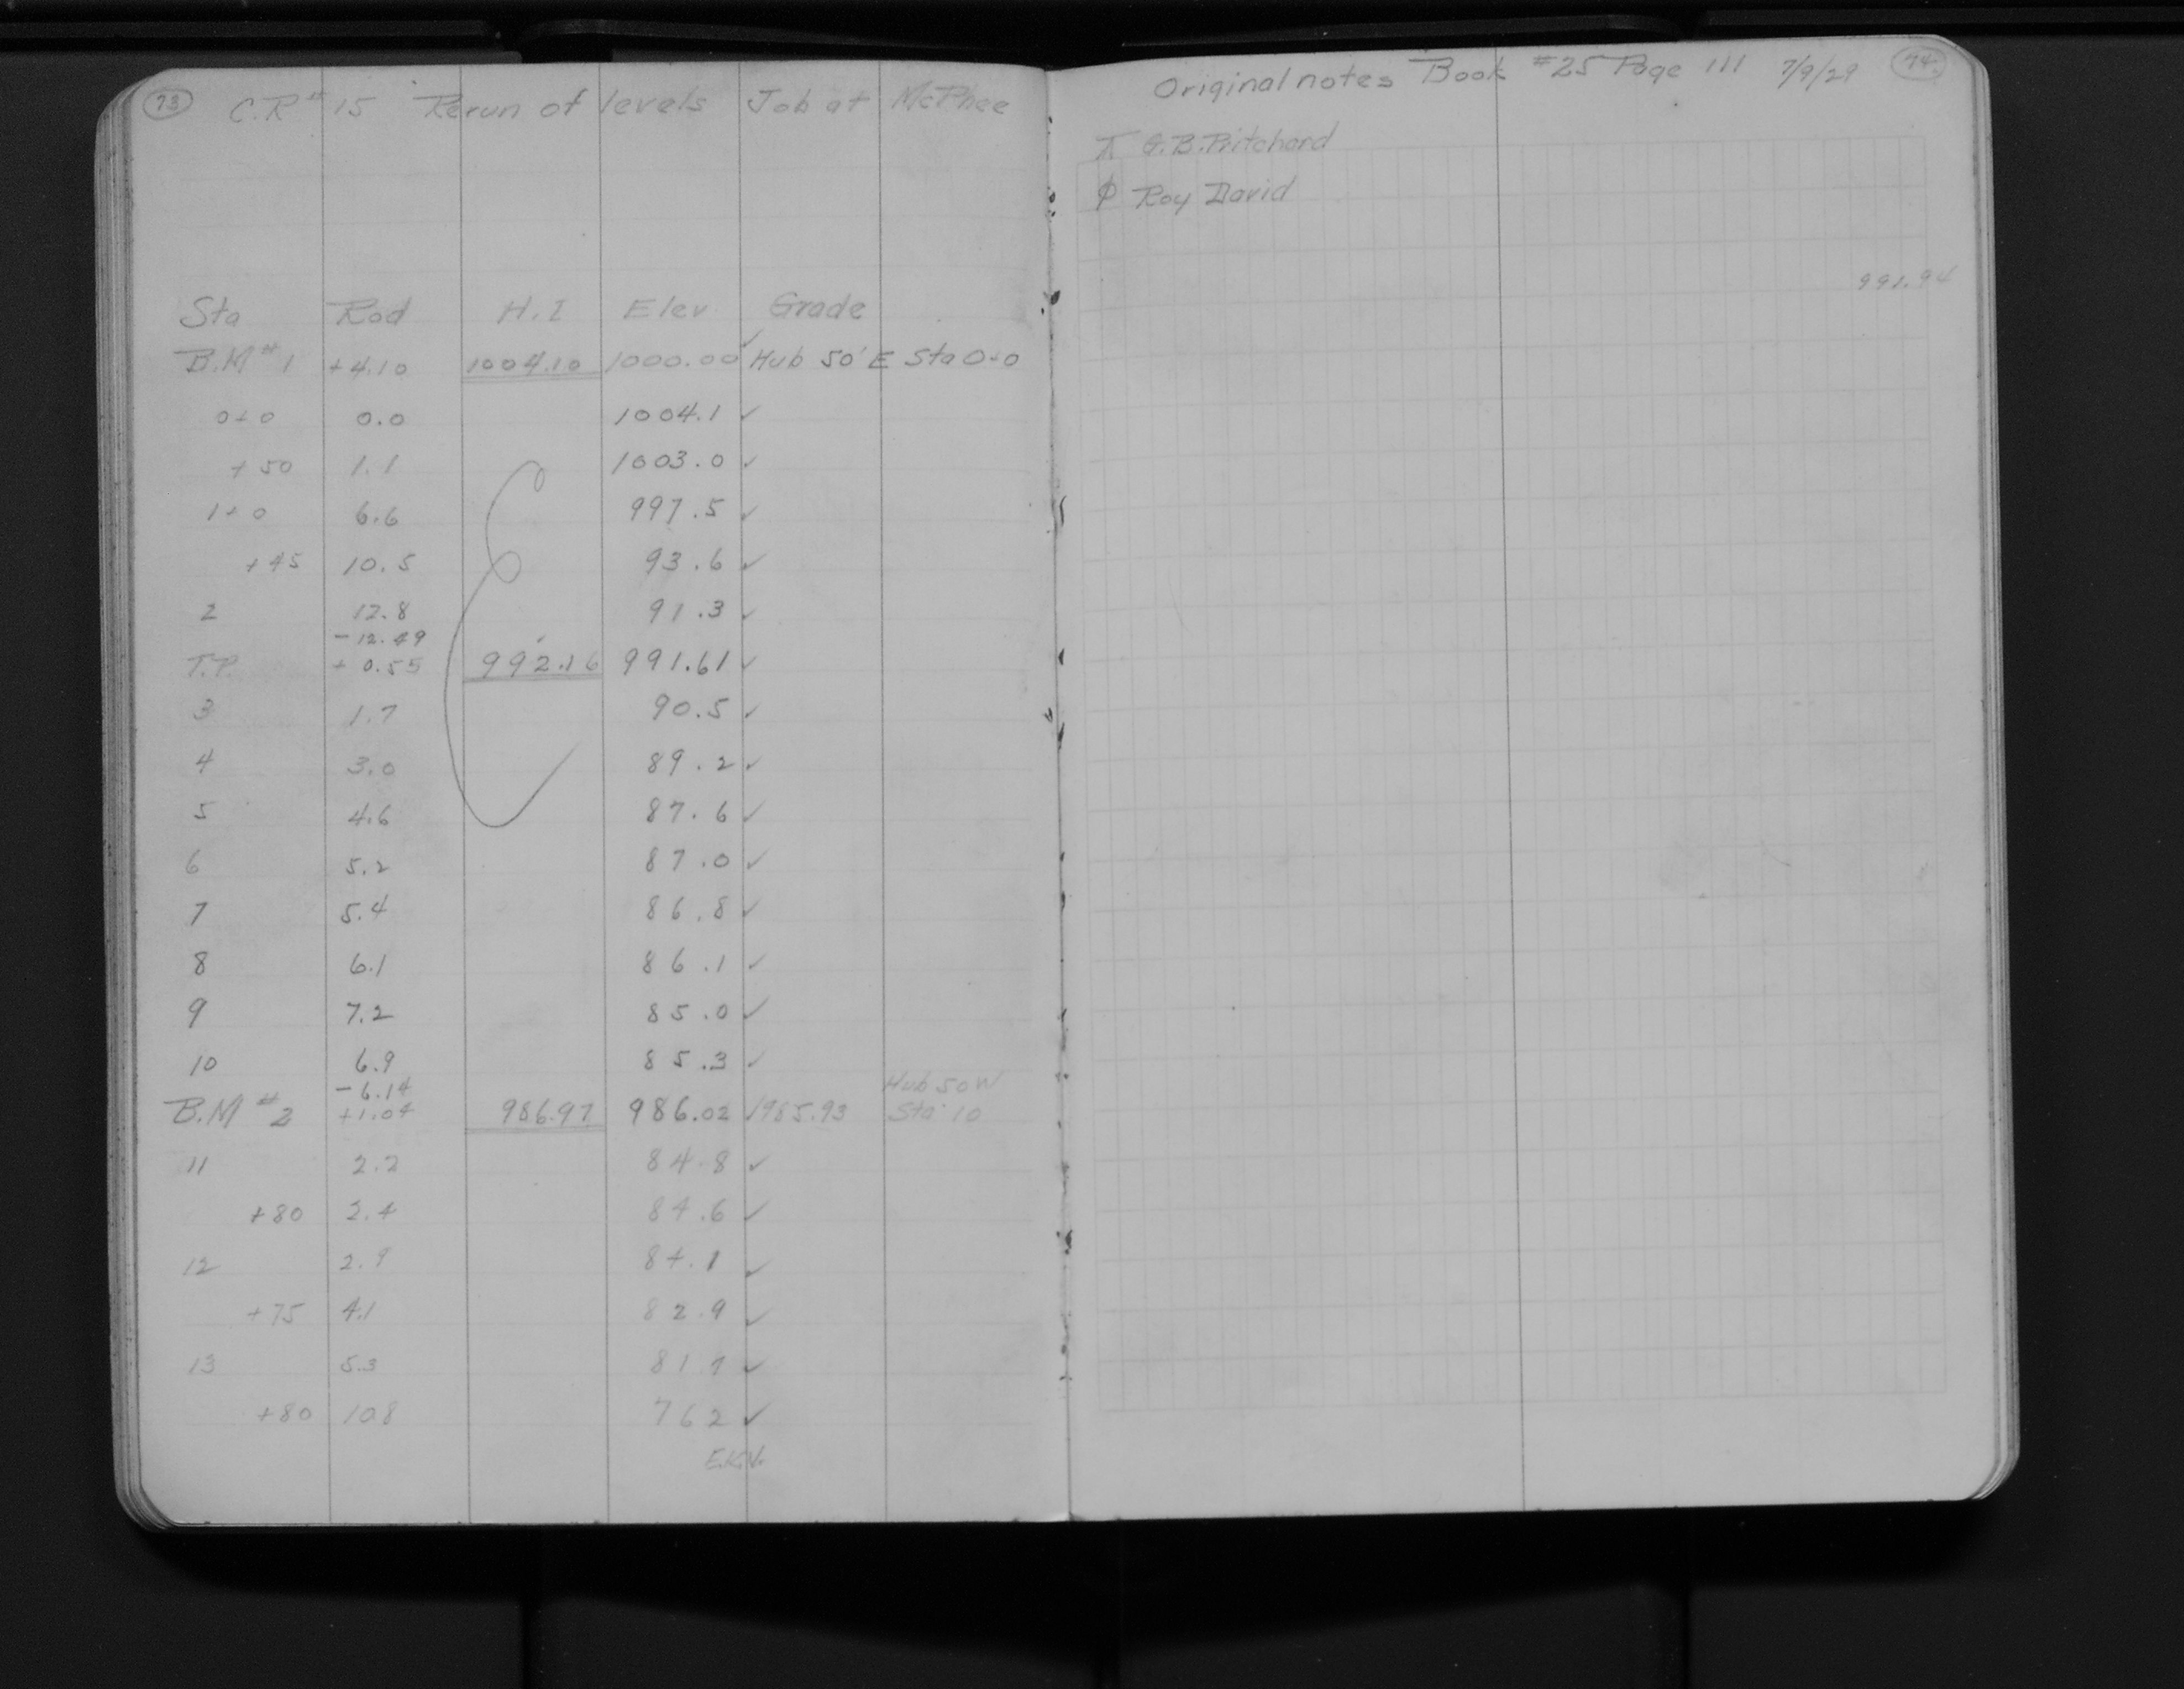 73 C.R # 15 Rerun of levels Job at McPhee
Sta Rod H.I Elev Grade
B.M # 1 +4.10 1004.10 1000.00 ✓ Hub 50' E Sta 0+0
0+0 0.0 1004.1 ✓
+50 1.1 1003.0 ✓
1+0 6.6 997.5 ✓
+45 10.5 93.6 ✓
2 12.8 91.3 ✓
-12.49
T.P. +0.55 992.16 991.61 ✓
3 1.7 90.5 ✓
4 3.0 89.2 ✓
5 4.6 87.6 ✓
6 5.2 87.0 ✓
7 5.4 86.8 ✓
8 6.1 86.1 ✓
9 7.2 85.0 ✓
10 6.9 85.3 ✓
-6.14 Hub 50 W
B.M # 2 +1.04 986.97 986.02 985.93 Sta 10
11 2.2 84.8 ✓
+80 2.4 84.6 ✓
12 2.9 84.1 ✓
+75 4.1 82.9 ✓
13 5.3 81.7 ✓
+80 10.8 762 ✓
E.K.V.
Original notes Book #25 Page 111 7/9/29 74
⊼ G.B. Pritchard
ϕ Roy David
991.94